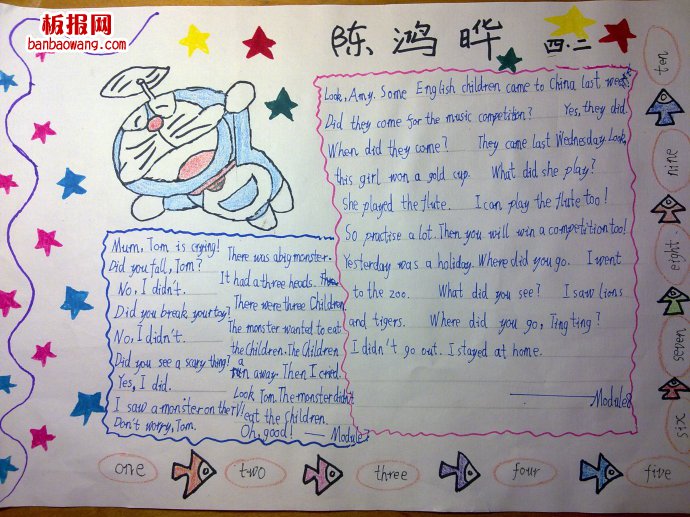 板报网
banbaowang.com
陈鸿晔
四.二
Look, Amy. Some English children came to China last week.
Did they come for the music competition? Yes, they did.
When did they come? They came last Wednesday. Look,
this girl won a gold cup. What did she play?
She played the flute. I can play the flute too!
So practise a lot. Then you will win a competition too!
Yesterday was a holiday. Where did you go. I went
to the zoo. What did you see? I saw lions
and tigers. Where did you go, Ting ting?
I didn't go out. I stayed at home.
Module8
Mum, Tom is crying!
Did you fall, Tom?
No, I didn't.
Did you break your toy?
No, I didn't.
Did you see a scary thing?
Yes, I did.
I saw a monister on the TV!
Don't worry, Tom.
There was a big monster.
It had a three heads.
There were three Children.
The monster wanted to eat
the Children. The Children
ran away. Then I cried.
Look Tom. The monster didn't
eat the Children.
Oh, good! — Module7
one
two
three
four
five
six
seven
eight
nine
ten